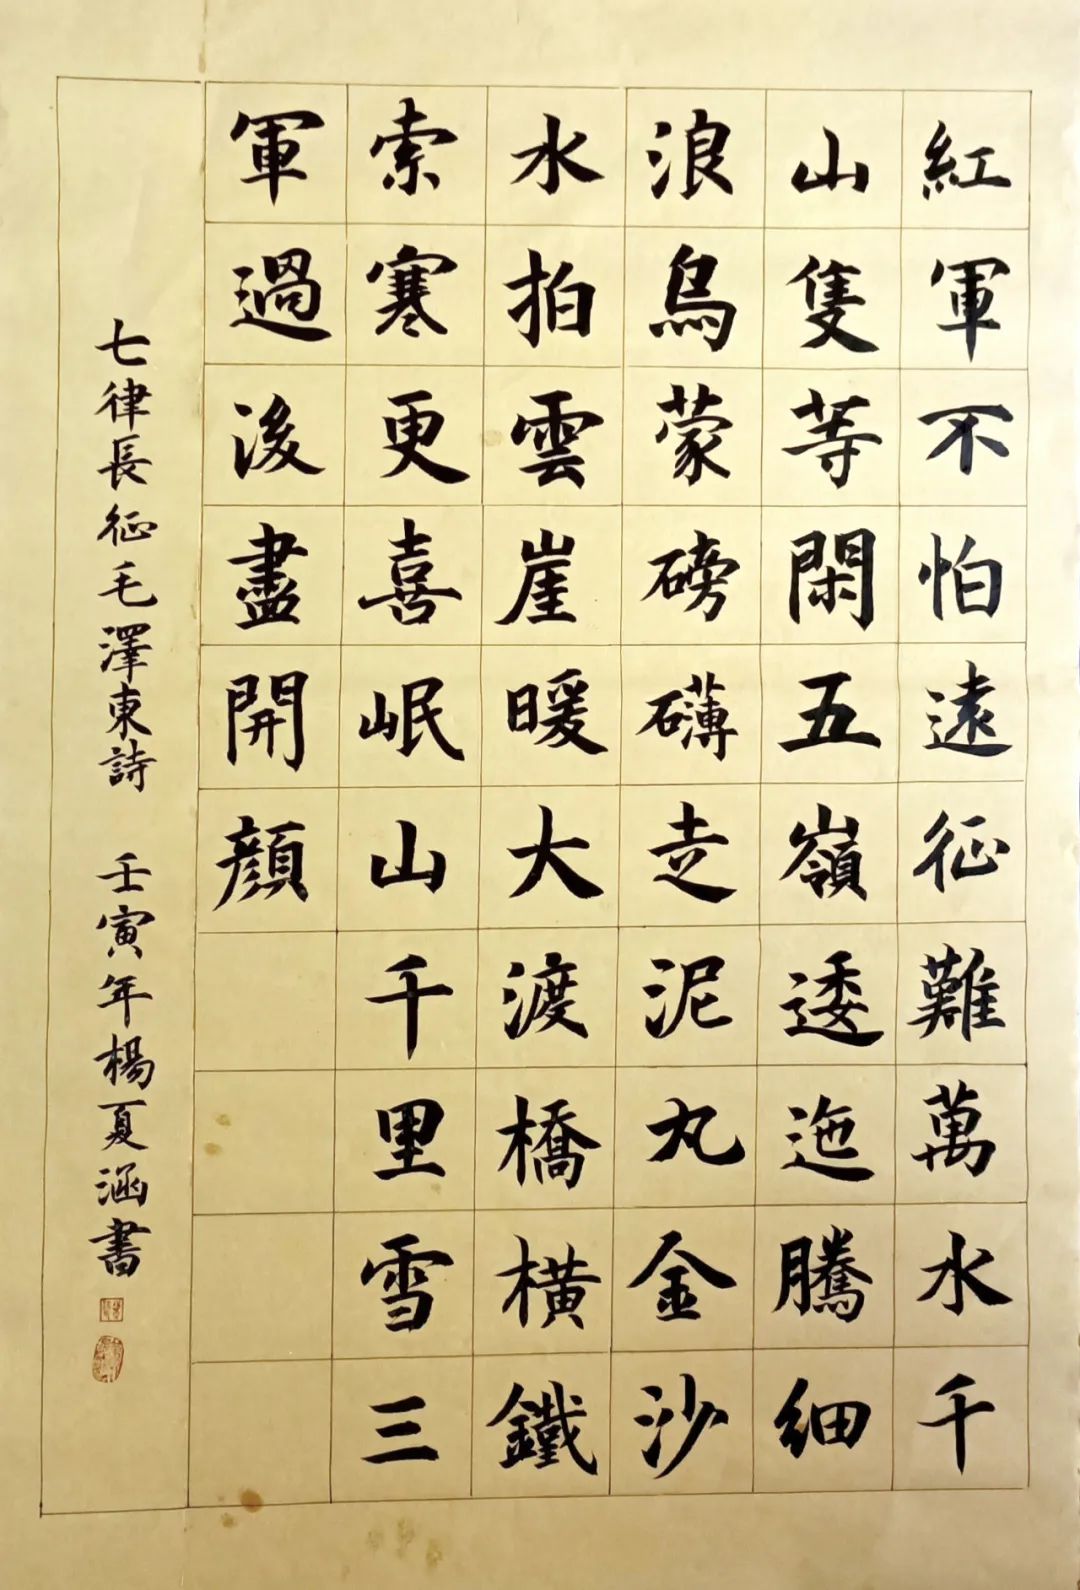 紅軍不怕遠征難萬水千
山隻等閑五嶺逶迤騰細
浪烏蒙磅礴走泥丸金沙
水拍雲崖暖大渡橋橫鐵
索寒更喜岷山千里雪三
軍過後盡開顏
七律長征毛澤東詩 壬寅年楊夏涵書